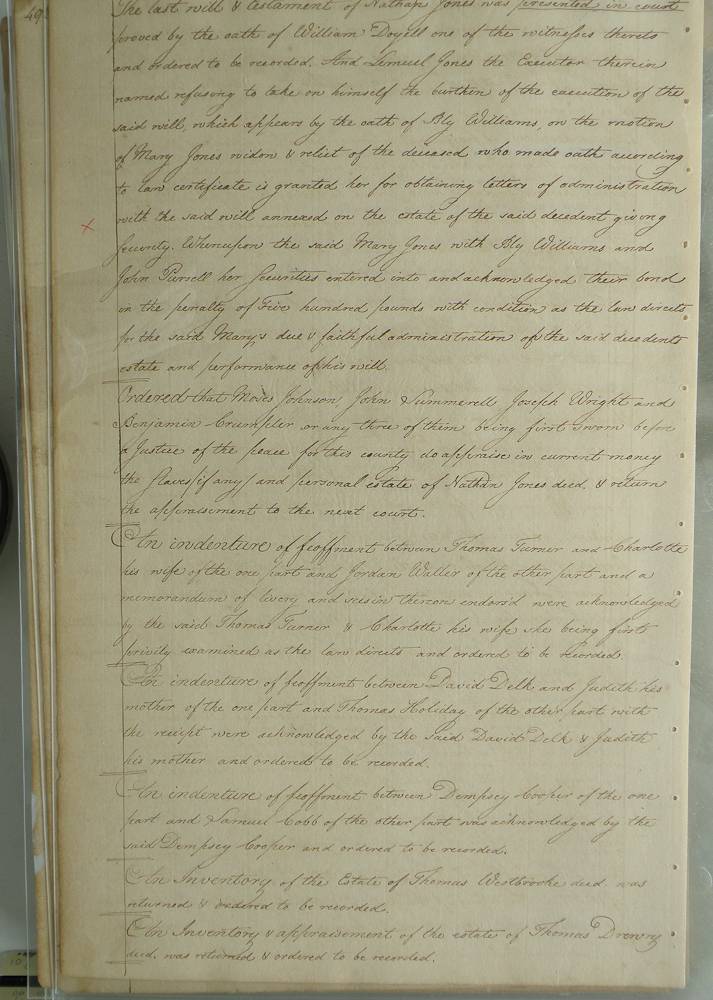 The last will & testament of Nathan Jones was presented in court
proved by the oath of William Doyell one of the witnesses thereto
and ordered to be recorded. And Lemuel Jones the Executor therein
named refusing to take on himself the burthen of the execution of the
said will, which appears by the oath of Bly Williams, on the motion
of Mary Jones widow & relict of the deceased who made oath according
to law certificate is granted her for obtaining letters of administration
with the said will annexed on the estate of the said decedent giving
Security. Whereupon the said Mary Jones with Bly Williams and
John Pursell her Securities entered into and acknowledged their bond
in the penalty of Five hundred pounds with condition as the law directs
for the said Mary's due & faithful administration of the said decedents
estate and performance of his will.
Ordered that Moses Johnson John Summerell Joseph Wright and
Benjamin Crumpler or any three of them being first sworn before
a Justice of the peace for this county do appraise in current money
the slaves/if any/ and personal estate of Nathan Jones deced. & return
the appraisement to the next court.
An indenture of feoffment between Thomas Turner and Charlotte
his wife of the one part and Jordan Waller of the other part and a
memorandum of livery and seisin thereon endors'd were acknowledged
by the said Thomas Turner & Charlotte his wife she being first
privily examined as the law directs and ordered to be recorded.
An indenture of feoffment between David Delk and Judith his
mother of the one part and Thomas Holiday of the other part with
the receipt were acknowledged by the said David Delk & Judith
his mother and ordered to be recorded.
An indenture of feoffment between Dempsey Cooper of the one
part and Samuel Cobb of the other part was acknowledged by the
said Dempsey Cooper and ordered to be recorded.
An Inventory of the Estate of Thomas Westbrooke deced. was
returned & ordered to be recorded.
An Inventory & appraisement of the estate of Thomas Drewry
deced. was returned & ordered to be recorded.